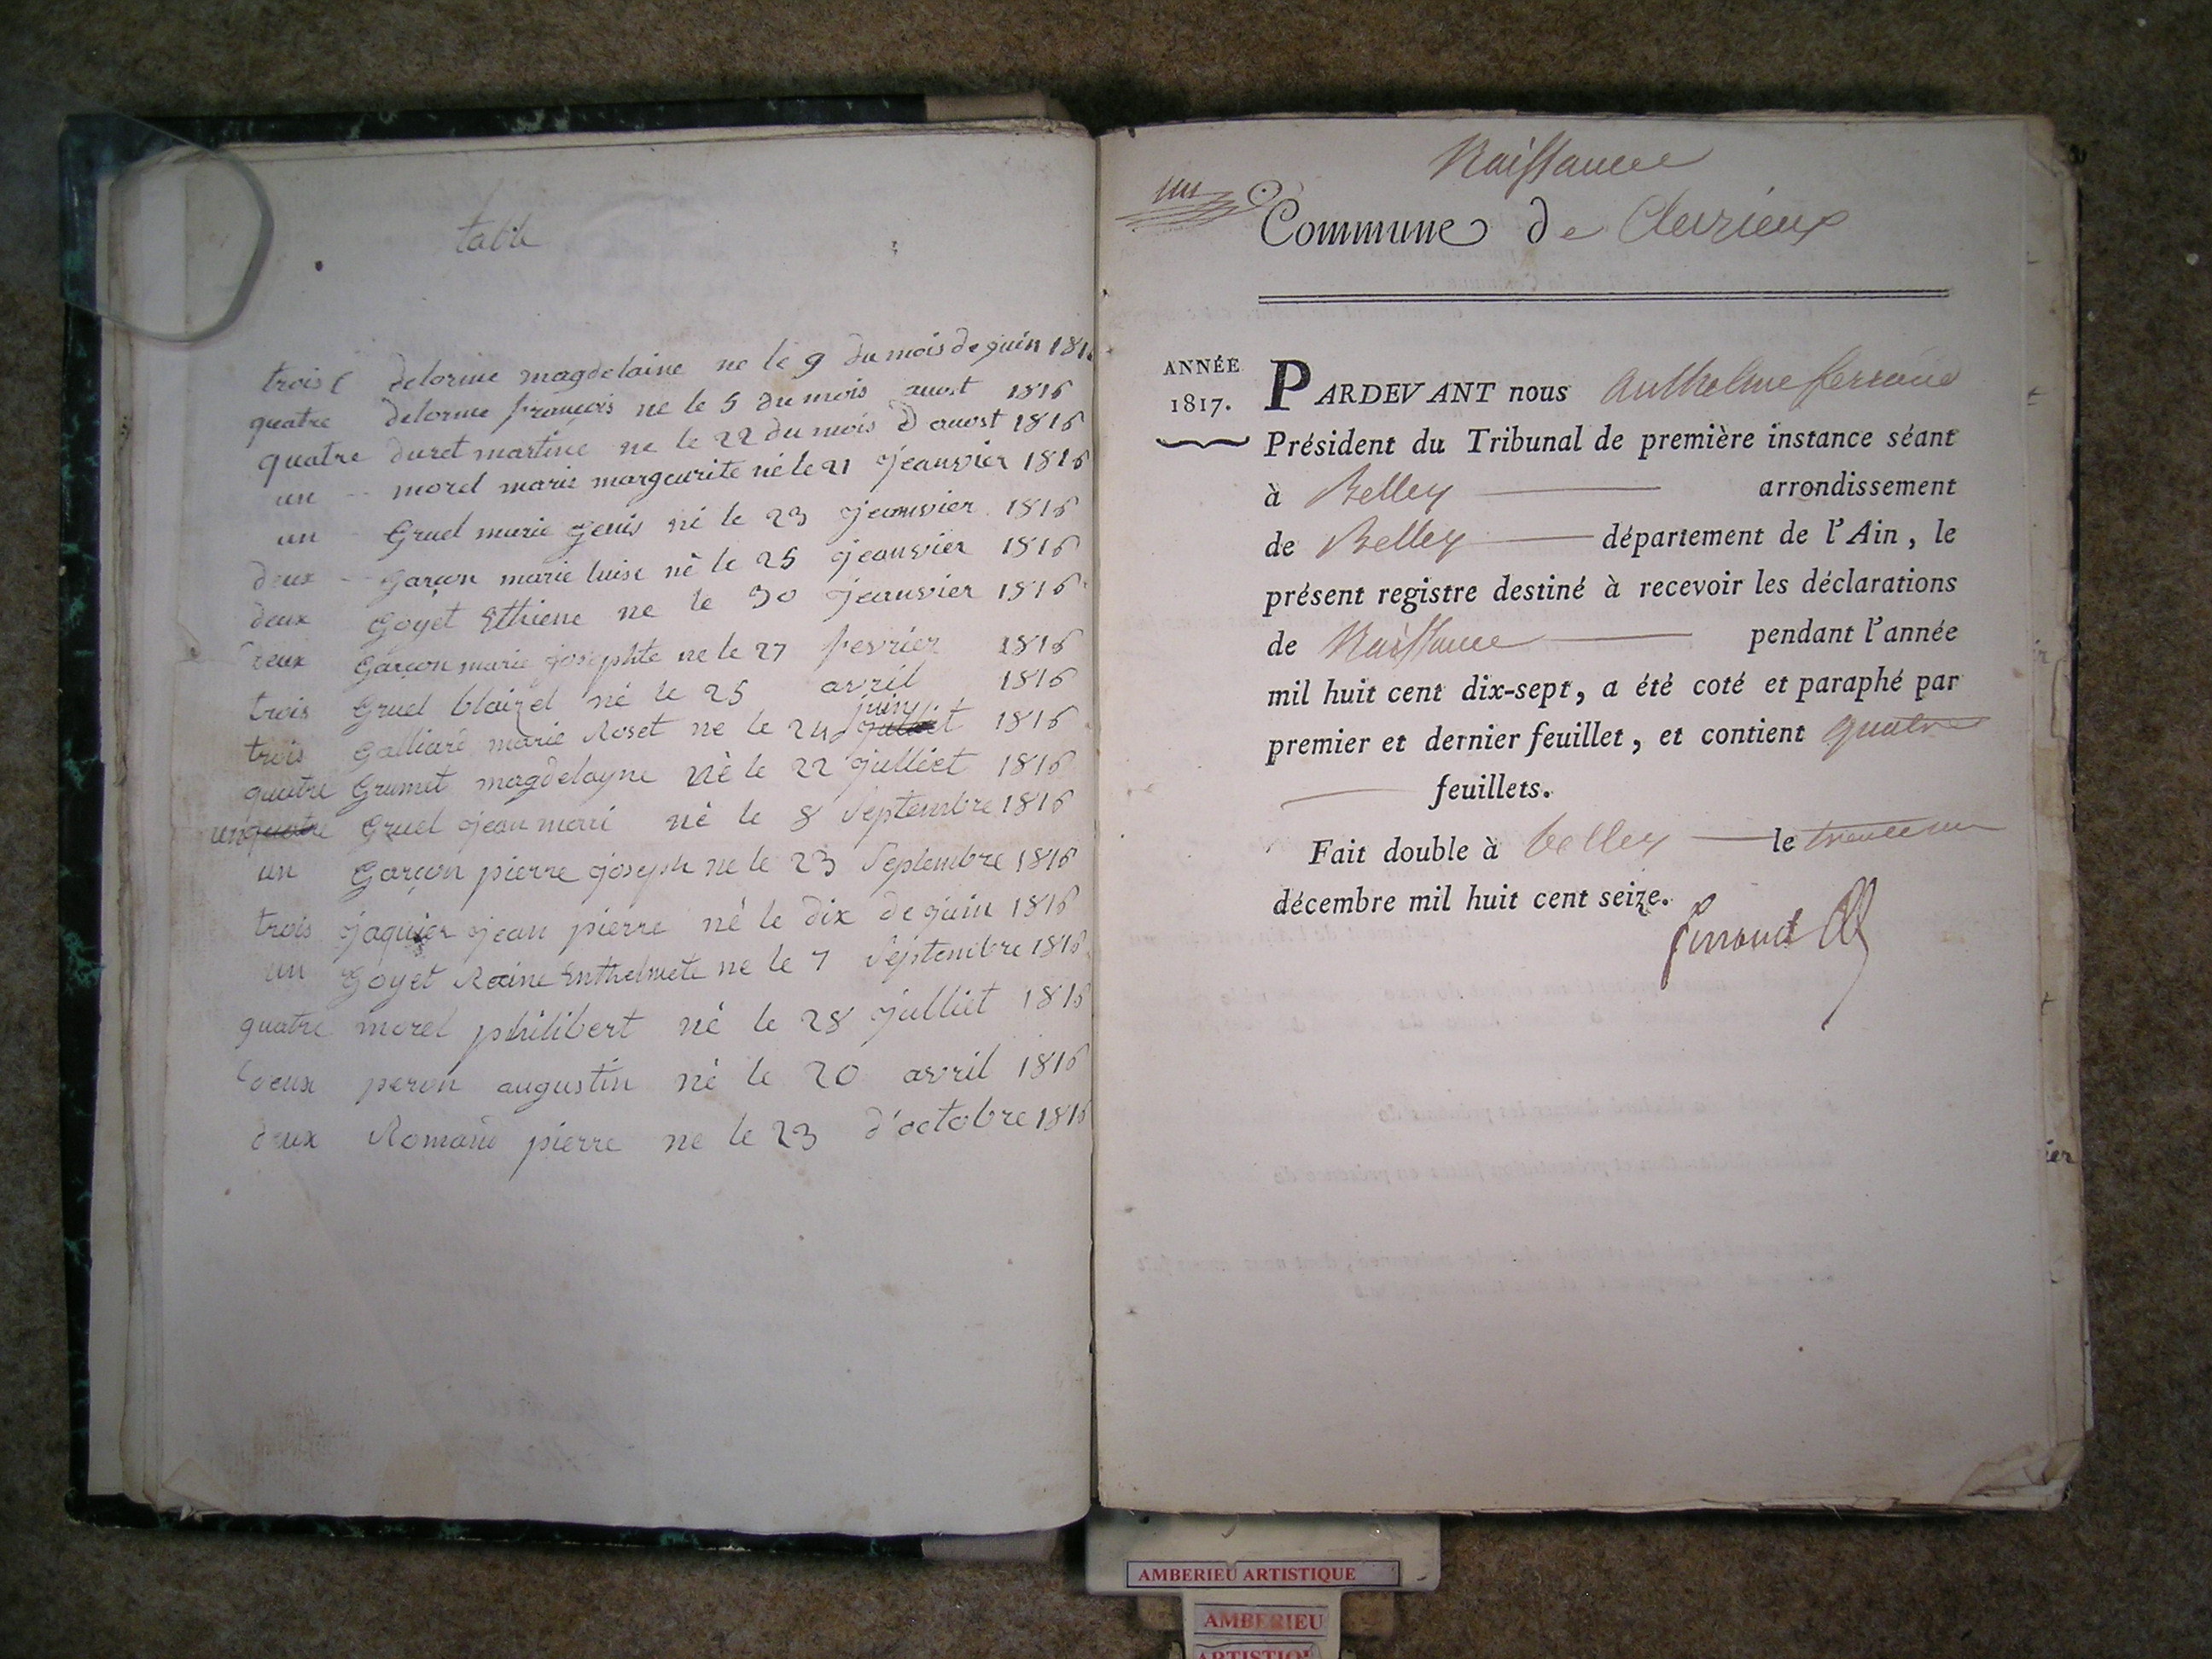 table
trois delorme magdelaine ne le 9 du mois de juin 1816
quatre delorme françois ne le 5 du mois auost 1816
quatre duret martine ne le 22 du mois d auost 1816
un morel marie margeurite né le 21 jeanvier 1816
un Gruel marie Genis né le 23 jeanvier 1816
deux Garçon marie luise nè le 25 jeanvier 1816
deux Goyet Ethiene ne le 30 jeanvier 1816
deux Garçon marie josephte ne le 27 fevrier 1816
trois Gruel blaizel né le 25 avril 1816
juin
trois Galliard marie Roset ne le 24 julliet 1816
quatre Grumet magdelayne nè le 22 julliet 1816
un quatre Gruel jean mari né le 8 Septembre 1816
un Garçon pierre joseph né le 23 Septembre 1816
trois jaquier jean pierre né le dix de juin 1816
un Goyet Reine Enthelmete ne le 7 Septembre 1816
quatre morel philibert né le 28 julliet 1816
deux peron augustin né le 20 avril 1816
deux Romand pierre ne le 23 d'octobre 1816
un
Naissance
Commune de Cleyzieux
ANNÉE
1817.
PARDEVANT nous Anthelme ferrand
Président du Tribunal de première instance séant
à Belley arrondissement
de Belley département de l'Ain, le
présent registre destiné à recevoir les déclarations
de Naissance pendant l'année
mil huit cent dix-sept, a été coté et paraphé par
premier et dernier feuillet, et contient quatre
feuillets.
Fait double à belley le trente un
décembre mil huit cent seize.
ferrand
AMBERIEU ARTISTIQUE
AMBERIEU
ARTISTIQUE